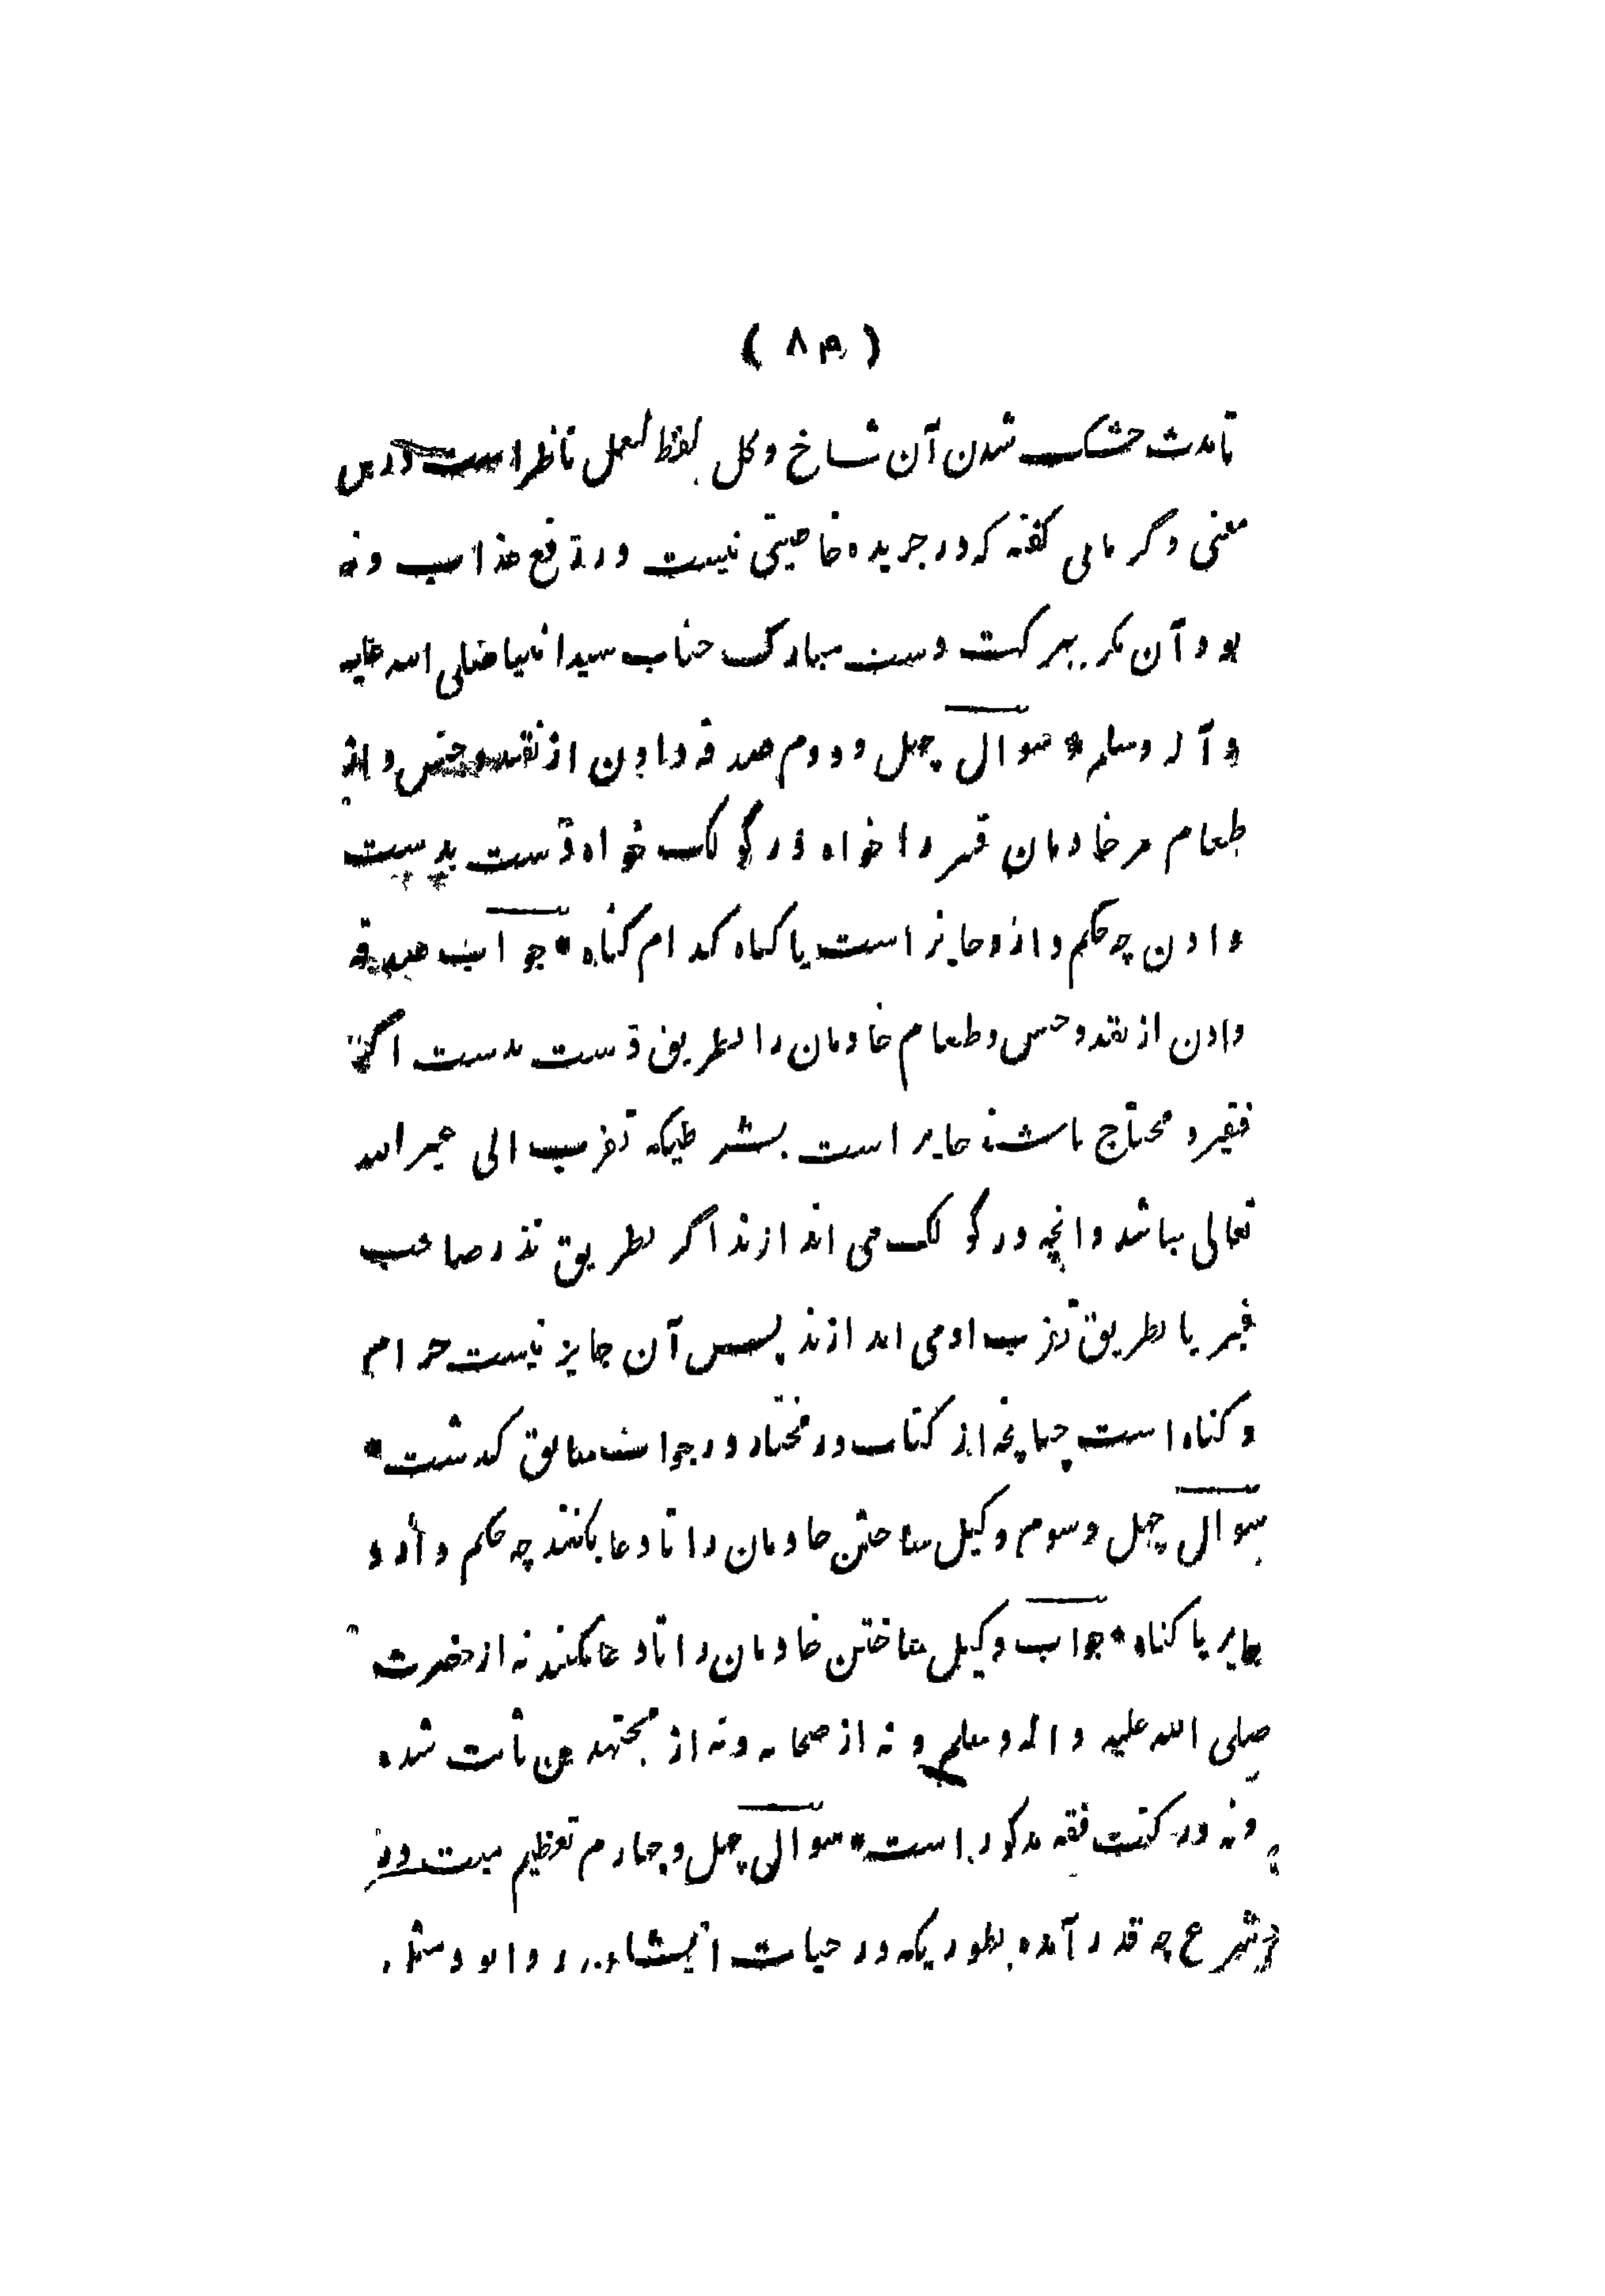 ( ۸۴ )
تا مدت خشک شدن آن شاخ و کل بلفظ لعل ناظر است و درین
معنی و کرمانی گفته که در جریده خاصیتی نیست در دفع عذاب و نه
بود آن مکر ببرکت دست مبارک جناب سید انبیا صلی الله علیه
و آله وسلم * سوال چهل و دوم صدقه دادن از نقد و جنس و از
طعام مر خادمان قبر را خواه در گولک خواه دست بدست
دادن چه حکم دارد جایز است یا گناه کدام گناه * جواب صدقه
دادن از نقد و جنس و طعام خادمان را بطریق دست بدست اگر
فقیر و محتاج باشند جایز است بشرطیکه تقرب الی غیر الله
تعالی نباشد و انچه در گولک می اندازند اگر بطریق نذر صاحب
قبر یا بطریق تقرب او می اندازند پس آن جایز نیست حرام
و گناه است چنانچه از کتاب در مختار در جواب سابق گذشت *
سوال چهل و سوم وکیل ساختن خادمان را تا دعا بکنند چه حکم دارد
جایز یا گناه * جواب وکیل ساختن خادمان را تا دعا بکنند نه از حضرت
صلی الله علیه و اله وسلم و نه از صحابه و نه از مجتهدین ثابت شده
و نه در کتب فقه مذکور است * سوال چهل و چهارم تعظیم میت در
شرع چه قدر آمده بطوریکه در حیات ایشان روا بود